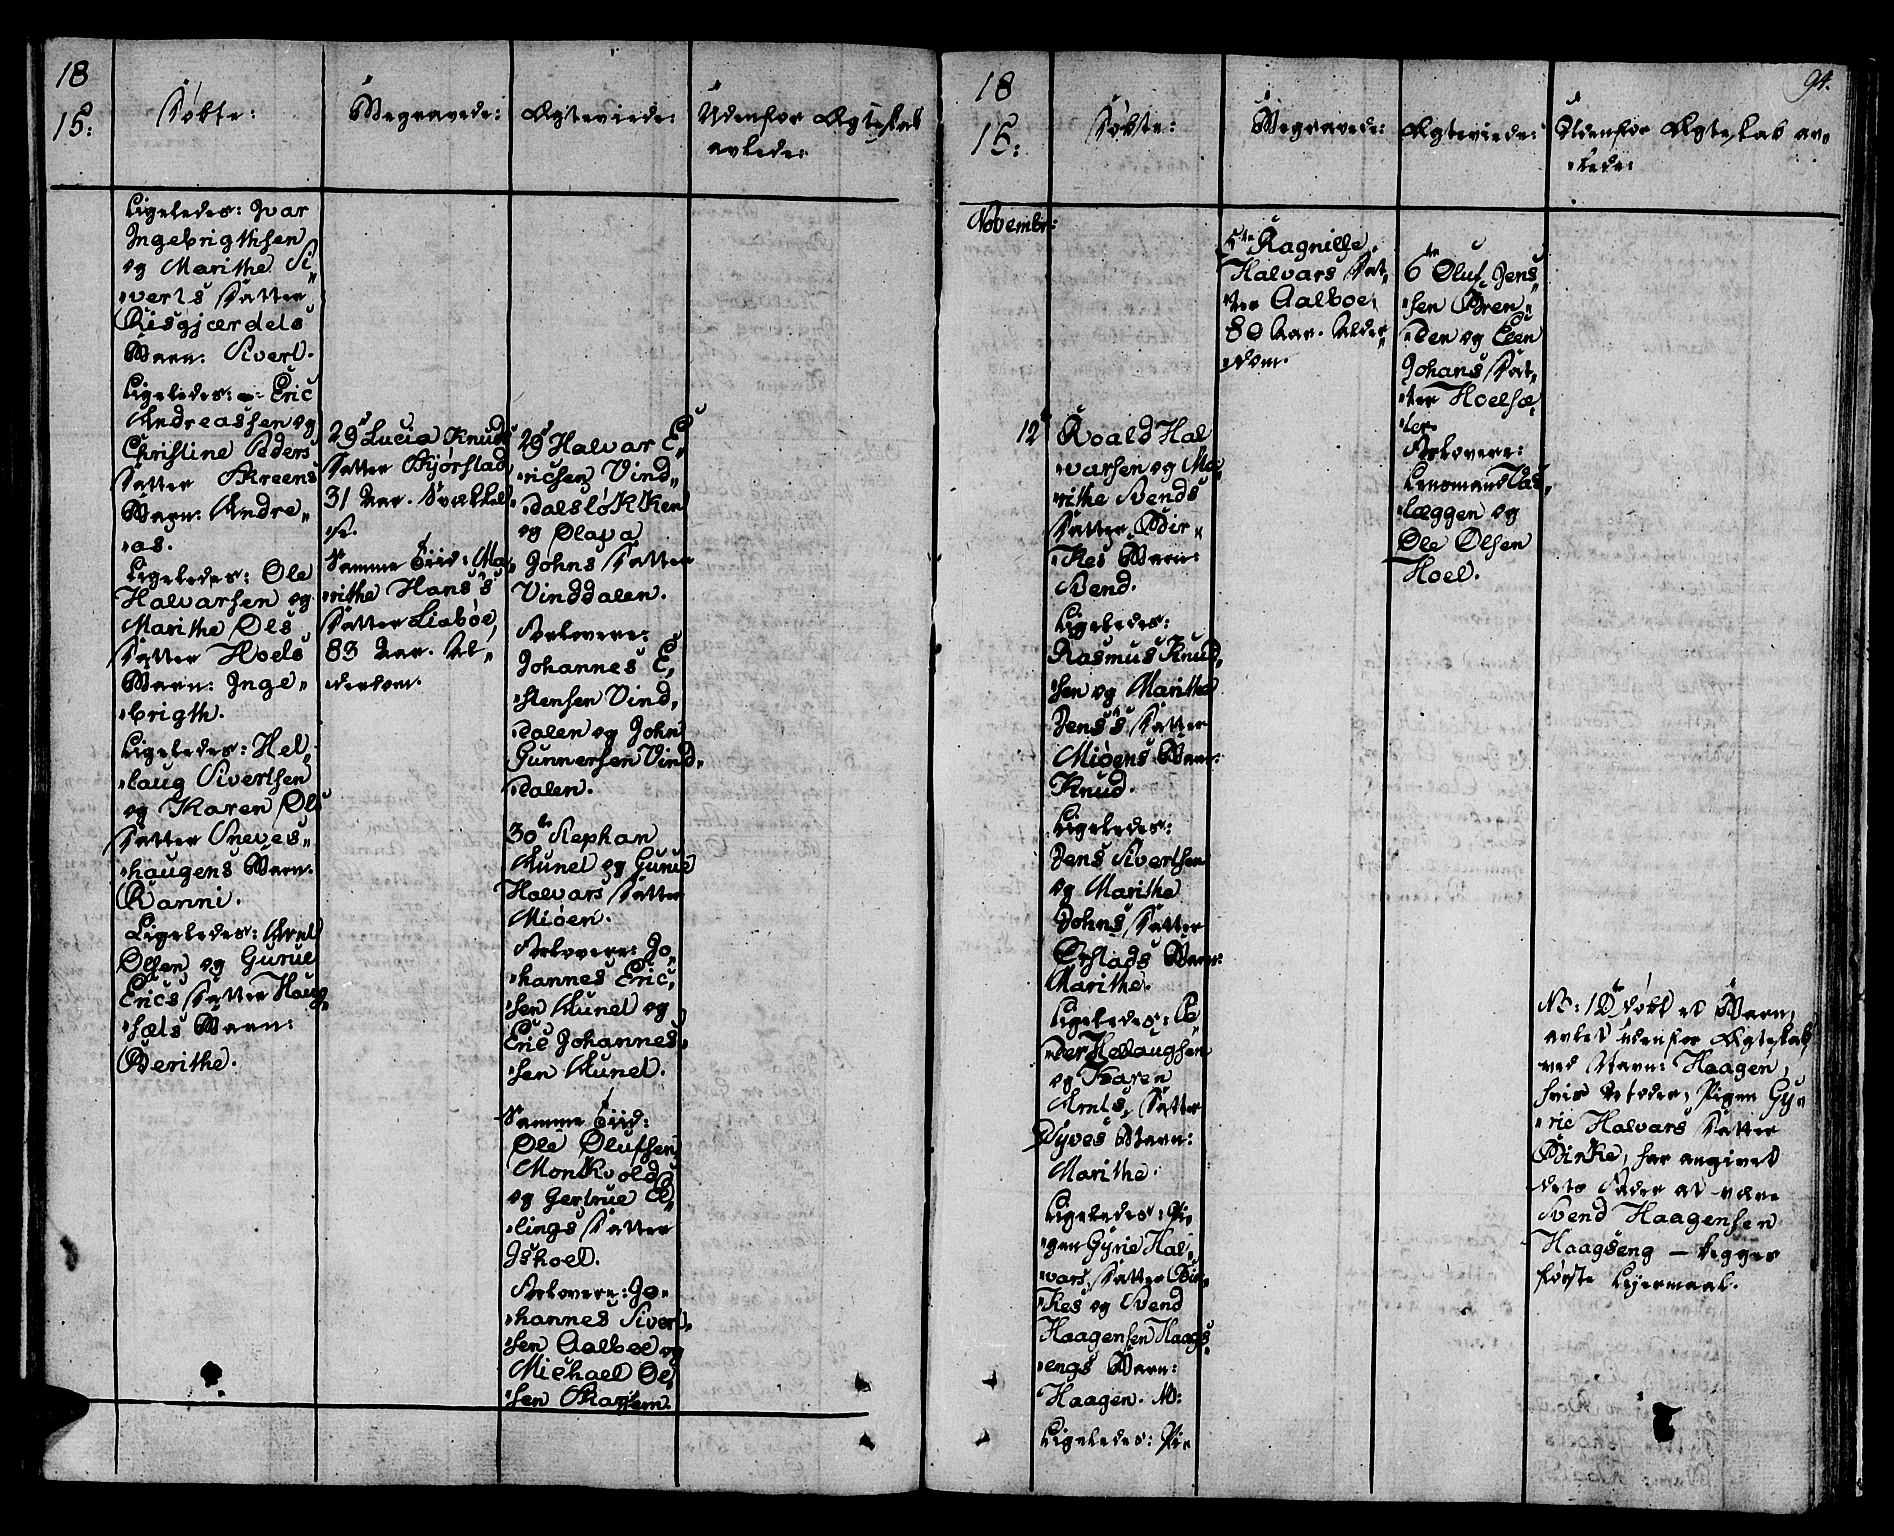 18
15:
Døbte:
Begravede:
Ægteviede:
Udenfor Ægteskab
avlede:
Ligeledes: Ivar
Ingebrigthsen
og Marithe Si„
„verts Datter
Risgjærdets
Barn: Sivert.
Ligeledes: Eric
Andreassen og
Christine Peders
Datter Skreens
Barn: Andre„
„as.
Ligeledes: Ole
Halvarsen og
Marithe Ols
Datter Hoels
Barn: Inge„
„brigth.
Ligeledes: Hel„
„laug Sivertsen
og Karen Ols
Datter Sneves„
„haugens Barn:
Ranni.
Ligeledes: Arnt
Olsen og Gurue
Erics Datter Haug„
„sæts Barn:
Berithe.
29 Lucia Knuds
Datter Bjørstad,
31 Aar. Svækkel„
„se.
Samme Tiid: Ma„
„rithe Hans's
Datter Liabøe,
83 Aar. Al„
„derdom.
29 Halvar E„
„ricsen Vind„
„dalsløkken
og Olava
Johns Datter
Vinddalen.
Forlovere:
Johannes E„
„stensen Vind„
„dalen og John
Gunnersen Vind„
„dalen.
30te Stephan
Aunet og Gurue
Halvars Datter
Miøen.
Forlovere: Jo„
„hannes Eric„
„sen Aunet og
Eric Johannes„
„sen Aunet.
Samme Tiid:
Ole Olufsen
Monkvold
og Gertrue E„
„lings Datter
Ishoel.
Forlovere: Jo„
„hannes Sivert„
„sen Aalboe og
Michael Ol„
„sen
18
15:
Døbte:
Begravede:
Ægteviede:
Udenfor Ægteskab av„
„lede:
94.
Novembr:
12 Roald Hal
„varsen og Ma„
„rithe Svends
Datter Bir„
„kes Barn:
Svend.
Ligeledes:
Rasmus Knud„
„sen og Marithe
Jens's Datter
Miøens Barn:
Knud.
Ligeledes:
Jens Sivertsen
og Marithe
Johns Datter
Ørstads Barn:
Marithe.
Ligeledes: Pe„
„der Hellaugsen
og Karen
Arnts Datter
Dyves Barn:
Marithe.
Ligeledes: Pi„
„gen Gyrie Hal„
„vars Datter Bir„
„kes og Svend
Haagensen Haags„
„engs Barn:
Haagen. N:
Ligeledes: Pi„
5te Ragnille
Halvars Dat„
„ter Aalboe,
80 Aar. Alder„
„dom.
6te Oluf Jens„
„sen Bren„
„den og Elen
Johans Dat„
„ter Hoelsæ„
„ter
Forlovere:
Lensmand Vad„
„læggen og
Ole Olsen
Hoel.
No: 1 døbt et Barn,
avlet udenfor Ægteskab
ved Navn: Haagen,
hvis Moder, Pigen Gy„
„rie Halvars Datter
Birke, har angivet
dets Fader at være
Svend Haagensen
Haagseng – begges
første Lejermaal.